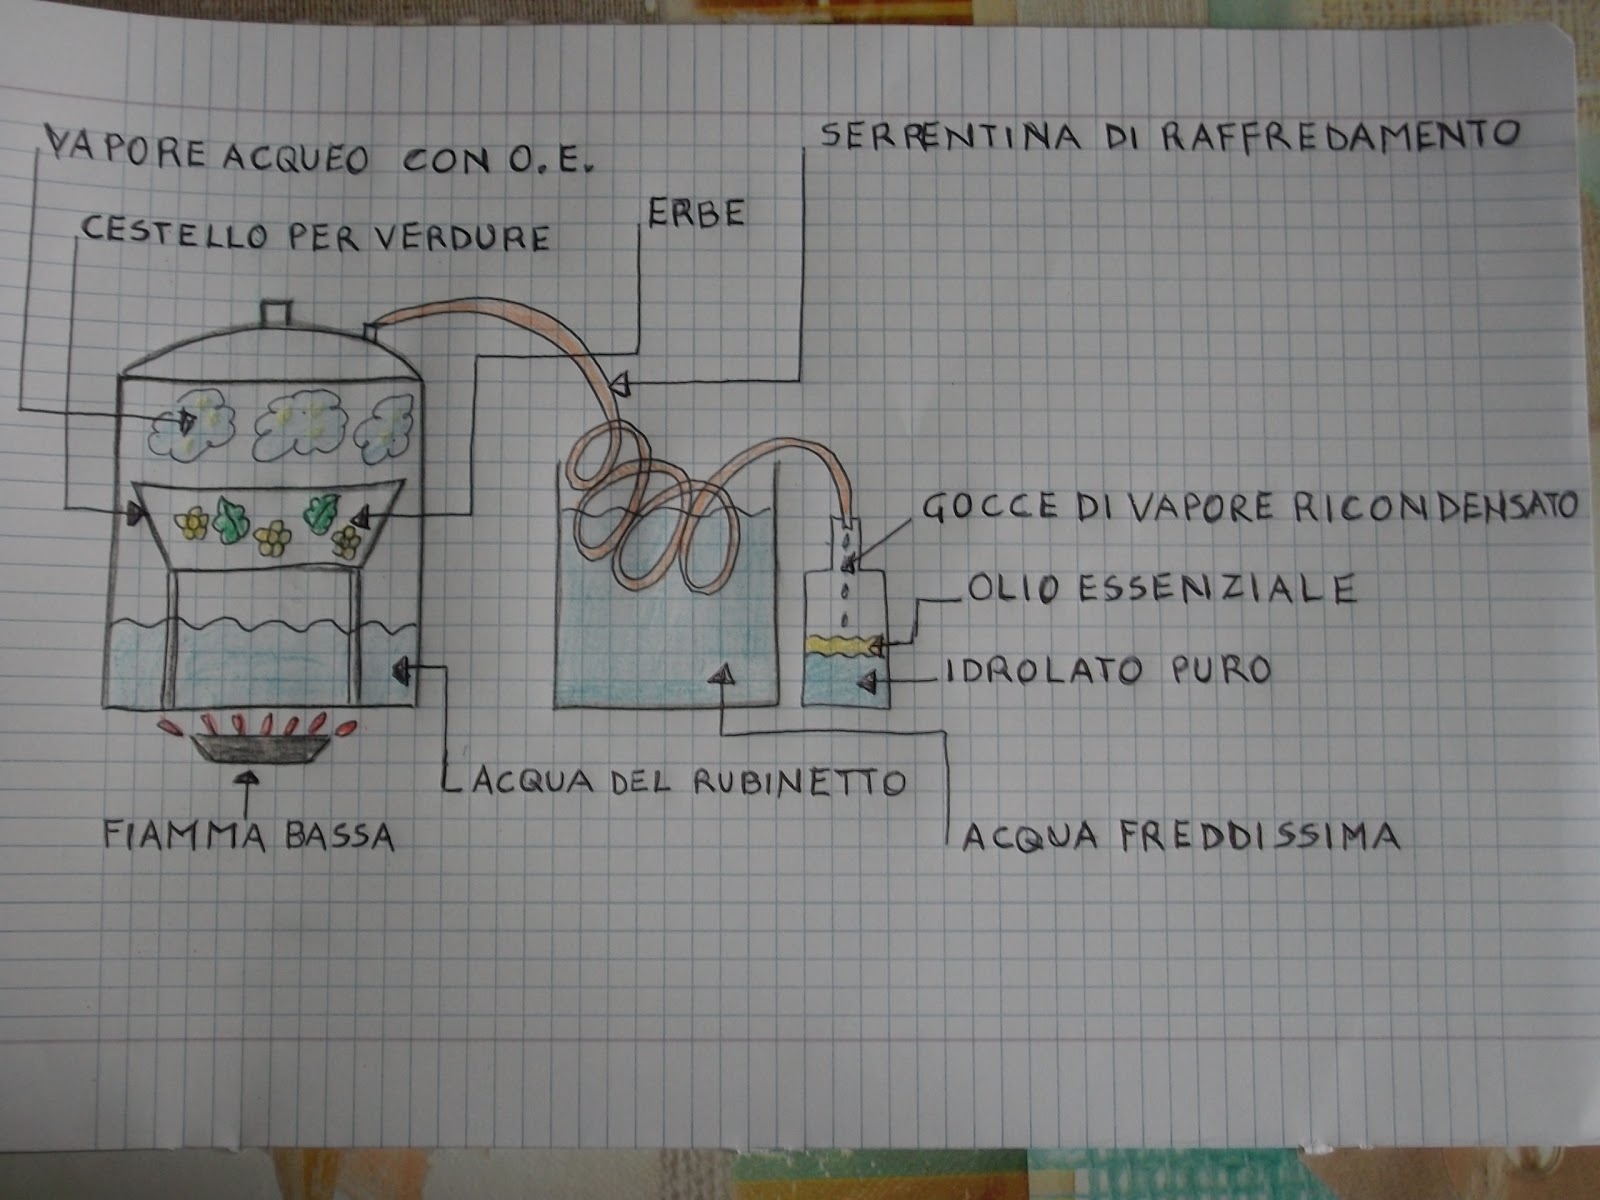 VAPORE ACQUEO CON O.E.
SERPENTINA DI RAFFREDAMENTO
CESTELLO PER VERDURE
ERBE
GOCCE DI VAPORE RICONDENSATO
OLIO ESSENZIALE
IDROLATO PURO
ACQUA DEL RUBINETTO
FIAMMA BASSA
ACQUA FREDDISSIMA